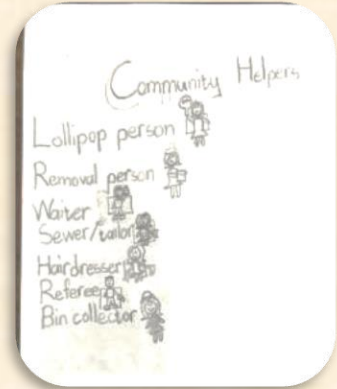 Community Helpers
Lollipop person
Removal person
Waiter
Sewer/tailor
Hairdresser
Referee
Bin collector